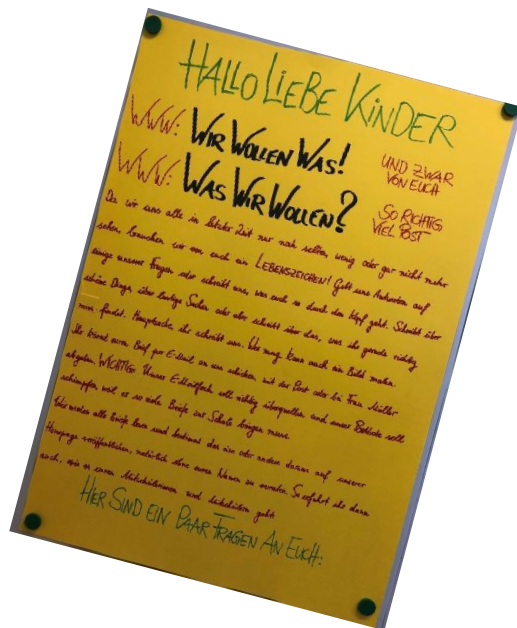 HALLO LIEBE KINDER
WWW: WIR WOLLEN WAS!
UND ZWAR
VON EUCH
WWW: WAS WIR WOLLEN?
SO RICHTIG
VIEL POST
Da wir uns alle in letzter Zeit nur noch selten, wenig oder gar nicht mehr
sehen, brauchen wir von euch ein LEBENSZEICHEN! Gebt uns Antworten auf
einige unserer Fragen oder schreibt uns, was euch so durch den Kopf geht. Schreibt über
schöne Dinge, über lustige Sachen oder aber schreibt über das, was ihr gerade richtig
findet. Hauptsache, ihr schreibt uns. Wer mag, kann auch ein Bild malen.
Ihr könnt euren Brief per E-Mail an uns schicken, mit der Post oder bei Frau Müller
abgeben. WICHTIG: Unser E-Mailfach soll richtig überquellen und unser Postbote soll
schimpfen, weil er so viele Briefe zur Schule bringen muss.
Wir werden alle Briefe lesen und bestimmt das ein oder andere davon auf unserer
Homepage veröffentlichen, natürlich ohne euren Namen zu verraten. So erfahrt ihr dann
auch, wie es euren Mitschülerinnen und Mitschülern geht.
HIER SIND EIN PAAR FRAGEN AN EUCH: